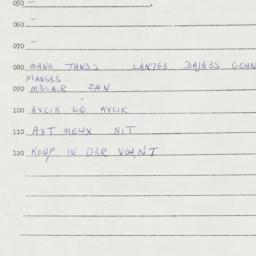 050 —
060 —
070 —
080 MANS TANS3S LAN7G3 DAJG3S GOHN
MANS3S
090 M3LAIR ZAN
100 AXCIK LQ AXCIK
110 AXT ME4X NIT
120 KO4P IN D3R VO4NT